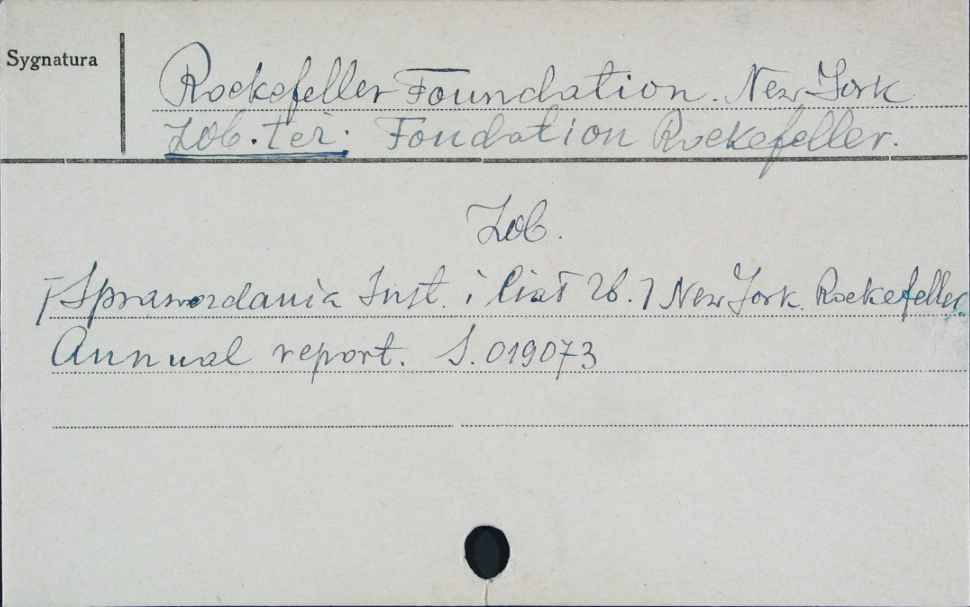 Sygnatura
Rockefeller Foundation. New York
Zob. też: Fondation Rockefeller.
Zob.
[Sprawozdania Inst. i list zb.] New York. Rockefeller.
Annual report. S. 019073